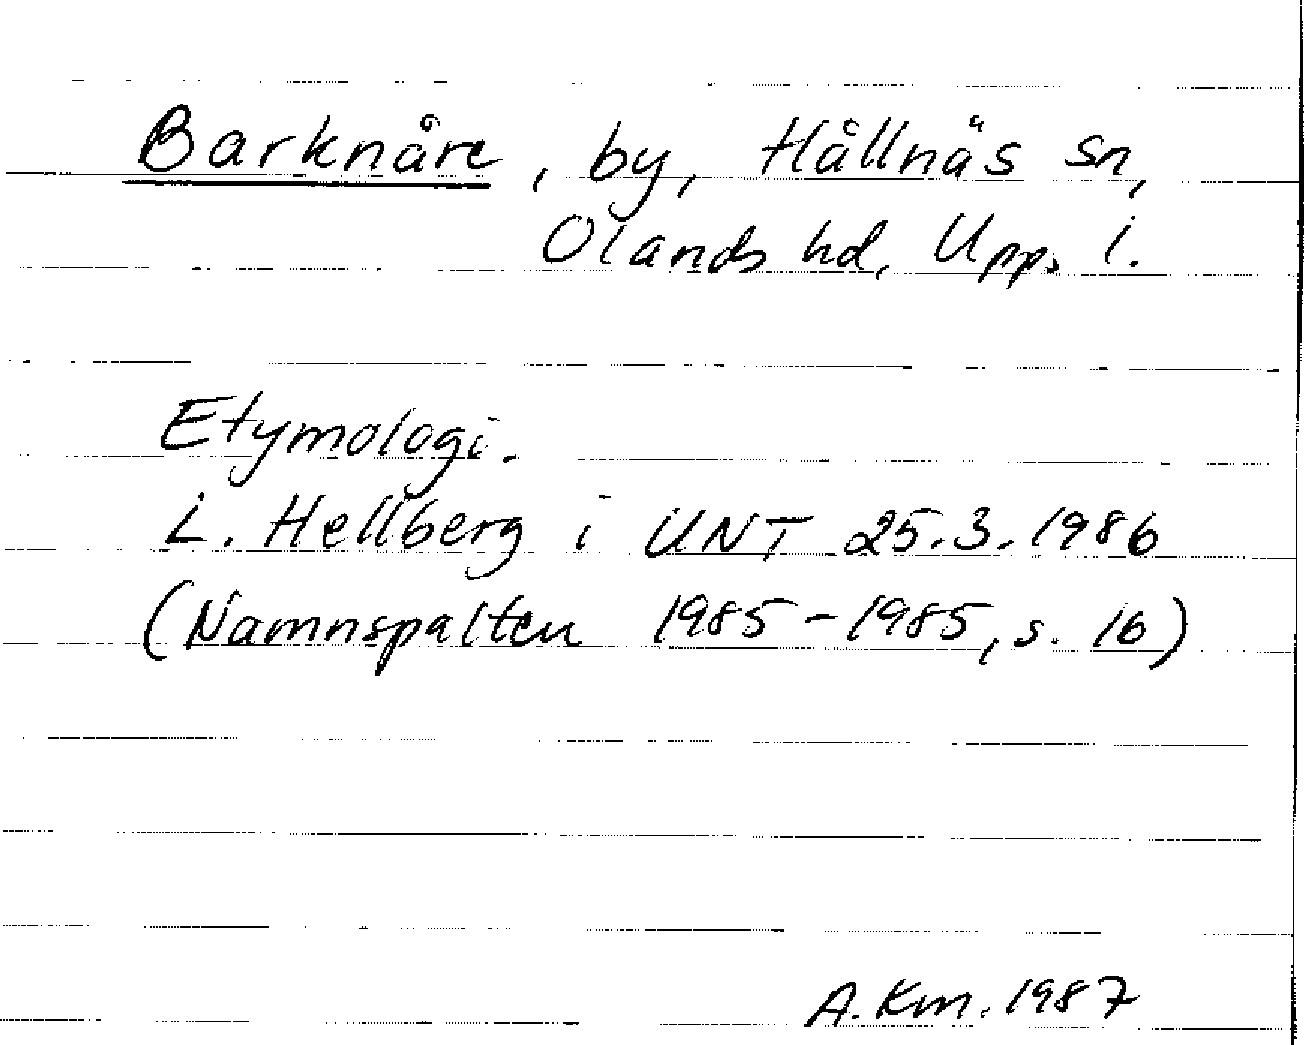 Barknåre, by, Hållnäs sn,
Olands hd, Upp. l.
Etymologi.
L. Hellberg i UNT 25.3.1986
(Namnspalten 1985-1985, s. 16)
A.Km. 1987